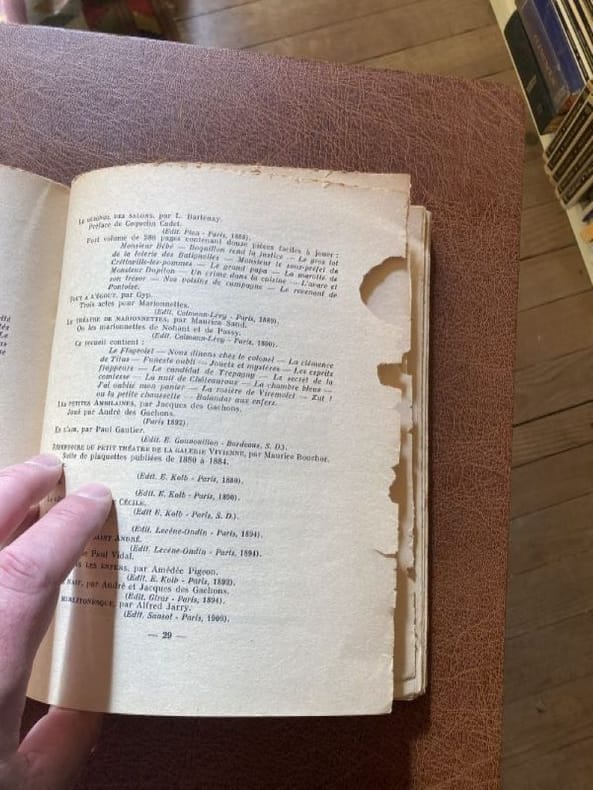 LE GUIGNOL DES SALONS, par L. Darthenay.
Préface de Coquelin Cadet.
(Edit. Plon - Paris, 1888).
Fort volume de 286 pages contenant douze pièces faciles à jouer :
Monsieur Bébé — Boquillon rend la justice — Le gros lot
de la loterie des Batignolles — Monsieur le sous-préfet de
Crétinville-les-pommes — Le grand papa — La marotte de
Monsieur Dupilon — Un crime dans la cuisine — L'avare et
son trésor — Nos voisins de campagne — Le revenant de
Pontoise.
TOUT A L'ÉGOUT, par Gyp.
Trois actes pour Marionnettes.
(Edit. Calmann-Lévy - Paris, 1889).
LE THÉÂTRE DE MARIONNETTES, par Maurice Sand.
Ou les marionnettes de Nohant et de Passy.
(Edit. Calmann-Lévy - Paris, 1890).
Ce recueil contient :
Le Flageolet — Nous dînons chez le colonel — La clémence
de Titus — Funeste oubli — Jouets et mystères — Les esprits
frappeurs — Le candidat de Trépagny — Le secret de la
comtesse — La nuit de Châteauroux — La chambre bleue —
J'ai oublié mon panier — La rosière de Viremolet — Zut !
ou la petite chaussette — Balandar aux enfers.
LES PETITES AMBILAINES, par Jacques des Gachons.
Joué par André des Gachons.
(Paris 1892).
EN L'AIR, par Paul Gautier.
(Edit. E. Gounouilhou - Bordeaux, S. D.).
RÉPERTOIRE DU PETIT THÉATRE DE LA GALERIE VIVIENNE, par Maurice Bouchor.
Suite de plaquettes publiées de 1880 à 1884.
(Edit. E. Kolb - Paris, 1880).
(Edit. E. Kolb - Paris, 1890).
CÉCILE.
(Edit E. Kolb - Paris, S. D.).
(Edit. Lecène-Oudin - Paris, 1894).
SAINT ANDRÉ.
(Edit. Lecène-Oudin - Paris, 1894).
Paul Vidal.
LES ENFERS, par Amédée Pigeon.
(Edit. E. Kolb - Paris, 1892).
par André et Jacques des Gachons.
(Edit. Girar - Paris, 1894).
MIRLITONESQUE, par Alfred Jarry.
(Edit. Sansot - Paris, 1906).
— 29 —